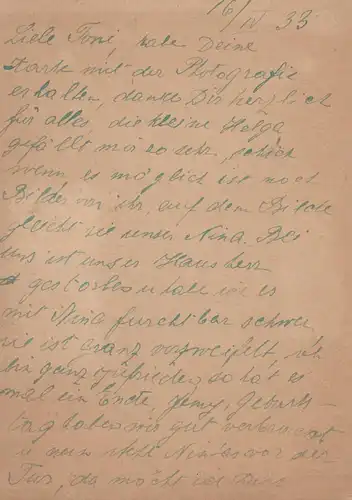 16/IV 33
Liebe Toni, habe Deine
Karte mit der Photografie
erhalten, danke Dir herzlich
für alles, die kleine Helga
gefällt mir so sehr, schick
wenn es möglich ist noch
Bilder von ihr, auf dem Bilde
gleicht sie unser Nina. Bei
uns ist unser Hausherr
gestorben u habe wie es
mit Nina furchtbar schwer
sie ist ganz verzweifelt, ich
bin ganz zufrieden, so hat es
mal ein Ende genug, Geburts-
tag haben wir gut verbracht
u nun steht vor der
Tür, da möcht